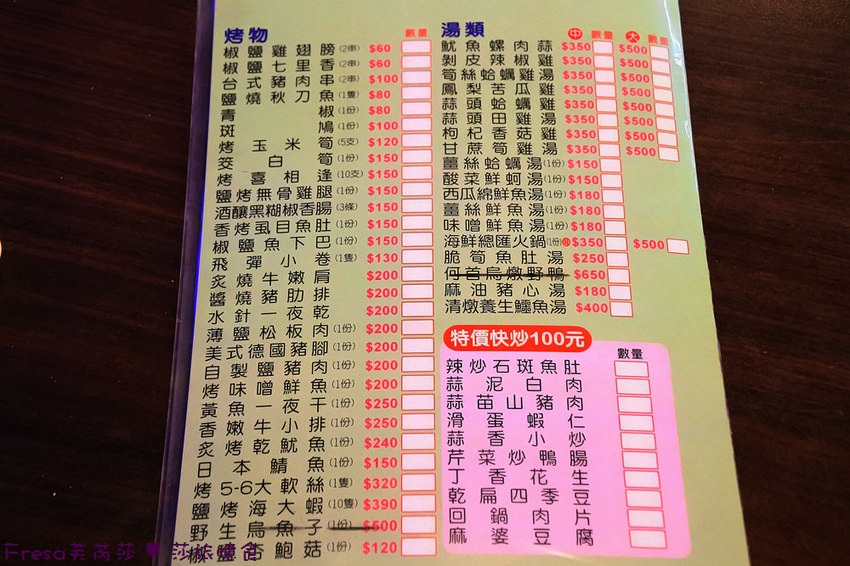 烤物 數量
椒鹽雞翅膀(2串) $60
椒鹽七里香(2串) $60
台式豬肉串(2串) $100
鹽燒秋刀魚(1隻) $80
青椒(1份) $80
斑鳩(1份) $100
烤玉米筍(5支) $120
筊白筍(1份) $150
烤喜相逢(10支) $150
鹽烤無骨雞腿(1份) $150
酒釀黑糊椒香腸(3條) $150
香烤虱目魚肚(1份) $150
椒鹽魚下巴(1份) $150
飛彈小卷(1隻) $130
炙燒牛嫩肩 $200
醬燒豬肋排 $200
水針一夜乾 $200
薄鹽松板肉(1份) $200
美式德國豬腳(1份) $200
自製鹽豬肉(1份) $200
烤味噌鮮魚(1份) $200
黃魚一夜干(1份) $250
香嫩牛小排(1份) $250
炙烤乾魷魚(1份) $240
日本鯖魚(1份) $150
烤5-6大軟絲(1隻) $320
鹽烤海大蝦(10隻) $390
野生烏魚子(1份) $500
椒鹽杏鮑菇(1份) $120
湯類 中 數量 大 數量
魷魚螺肉蒜 $350 $500
剝皮辣椒雞 $350 $500
筍絲蛤蠣雞湯 $350 $500
鳳梨苦瓜雞 $350 $500
蒜頭蛤蠣雞 $350 $500
蒜頭田雞湯 $350 $500
枸杞香菇雞 $350 $500
甘蔗筍雞湯 $350 $500
薑絲蛤蠣湯(1份) $150
酸菜鮮蚵湯(1份) $150
西瓜綿鮮魚湯(1份) $180
薑絲鮮魚湯(1份) $180
味噌鮮魚湯(1份) $180
海鮮總匯火鍋(1份) 小 $350 $500
脆筍魚肚湯 $250
何首烏燉野鴨 $650
麻油豬心湯 $180
清燉養生鱷魚湯 $400
特價快炒100元
數量
辣炒石斑魚肚
蒜泥白肉
蒜苗山豬肉
滑蛋蝦仁
蒜香小炒
芹菜炒鴨腸
丁香花生
乾扁四季豆
回鍋肉片
麻婆豆腐
Fresa芙芮莎 ♥ 莎旅燴舍